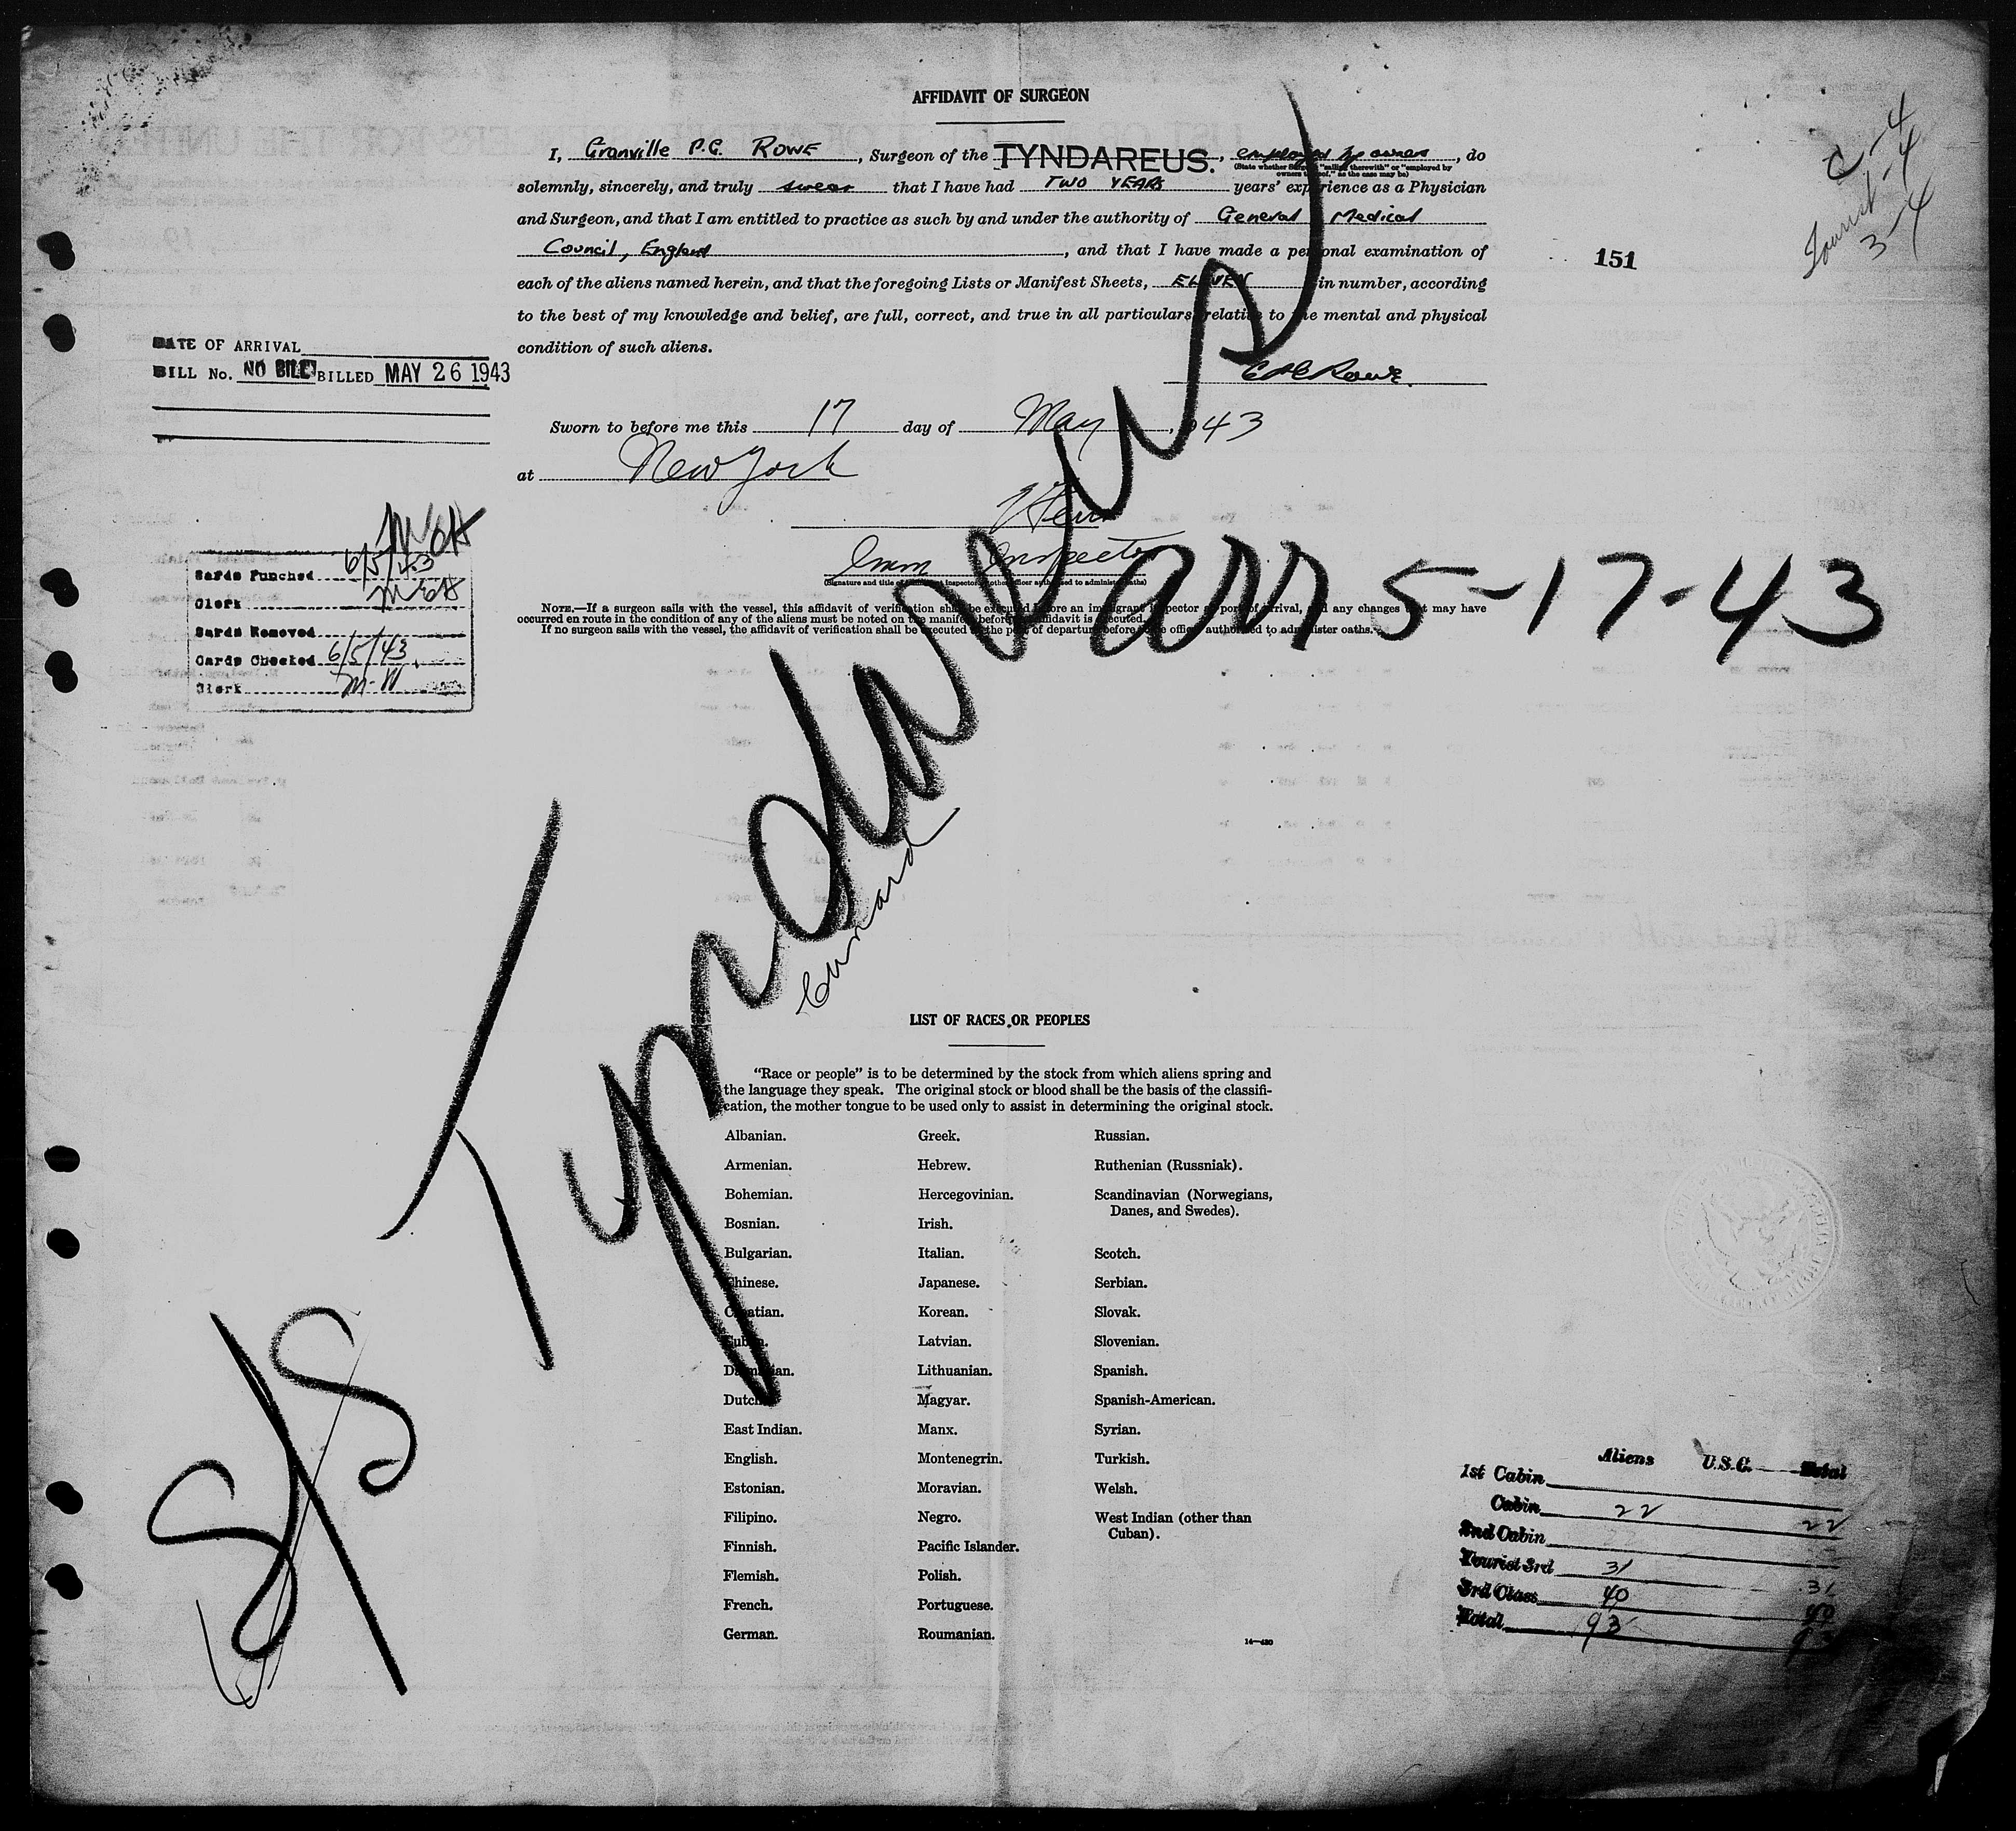 AFFIDAVIT OF SURGEON
I, Granville P.G. Rowe, Surgeon of the TYNDAREUS., employed by owners, do
(State whether "sailing therewith" or "employed by
owners thereof," as the case may be)
solemnly, sincerely, and truly swear that I have had TWO YEARS years' experience as a Physician
and Surgeon, and that I am entitled to practice as such by and under the authority of General Medical
Council, England, and that I have made a personal examination of
each of the aliens named herein, and that the foregoing Lists or Manifest Sheets, ELEVEN in number, according
to the best of my knowledge and belief, are full, correct, and true in all particulars relative to the mental and physical
condition of such aliens.
Rowe.
C-4
Tourist-4
3-4
151
DATE OF ARRIVAL
BILL No. NO BILL BILLED MAY 26 1943
Sworn to before me this 17 day of May, 1943
at New York
Imm Inspector
(Signature and title of immigrant inspector or other officer authorized to administer oaths)
NOTE.—If a surgeon sails with the vessel, this affidavit of verification shall be executed before an immigrant inspector at port of arrival, and any changes that may have
occurred en route in the condition of any of the aliens must be noted on the manifest before affidavit is executed.
If no surgeon sails with the vessel, the affidavit of verification shall be executed at the port of departure before some officer authorized to administer oaths.
Cards Punched 6/5/43
Clerk
Cards Removed
Cards Checked 6/5/43
Clerk M-W
S/S Tyndareus arr 5-17-43
Cunard
LIST OF RACES OR PEOPLES
"Race or people" is to be determined by the stock from which aliens spring and
the language they speak. The original stock or blood shall be the basis of the classifi-
cation, the mother tongue to be used only to assist in determining the original stock.
Albanian.
Armenian.
Bohemian.
Bosnian.
Bulgarian.
Chinese.
Croatian.
Cuban.
Dalmatian.
Dutch.
East Indian.
English.
Estonian.
Filipino.
Finnish.
Flemish.
French.
German.
Greek.
Hebrew.
Hercegovinian.
Irish.
Italian.
Japanese.
Korean.
Latvian.
Lithuanian.
Magyar.
Manx.
Montenegrin.
Moravian.
Negro.
Pacific Islander.
Polish.
Portuguese.
Roumanian.
Russian.
Ruthenian (Russniak).
Scandinavian (Norwegians,
Danes, and Swedes).
Scotch.
Serbian.
Slovak.
Slovenian.
Spanish.
Spanish-American.
Syrian.
Turkish.
Welsh.
West Indian (other than
Cuban).
14—420
Aliens U.S.C. Total
1st Cabin
Cabin 22 22
2nd Cabin
Tourist 3rd 31 31
3rd Class 40 40
Total 93 93